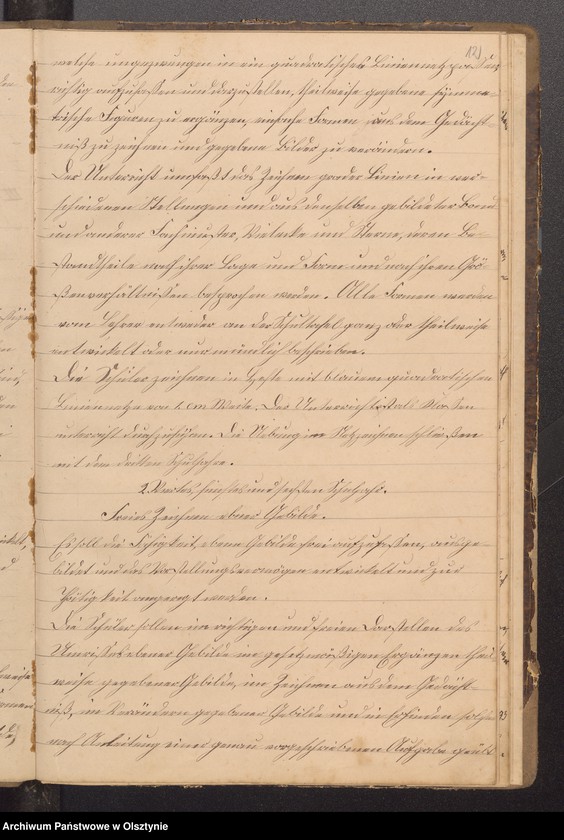 121
welche ungezwungen in ein quadratisches Liniennetz passen,
richtig aufzufassen und darzustellen, theilweise gegebene symme-
trische Figuren zu ergänzen, einfache Formen aus dem Gedächt-
niß zu zeichnen und gegebene Bilder zu verändern.
Der Unterricht umfaßt das Zeichnen grader Linien in ver-
schiedenen Stellungen und aus denselben gebildeter Band
und anderer Flachmuster, Vielecke und Sterne, deren Be-
standtheile nach ihrer Lage und Form und nach ihren Grö-
ßenverhältnissen besprochen werden. Alle Formen werden
vom Lehrer entweder an der Schultafel ganz oder theilweise
entwickelt oder nur mündlich beschrieben.
Die Schüler zeichnen in Hefte mit blauem quadratischen
Liniennetze von 1 cm Weite. Der Unterricht ist als Klassen
unterricht durchzuführen. Die Uebungen im Netzzeichnen schließen
mit dem dritten Schuljahre.
2. Viertes, fünftes und sechstes Schuljahr.
Freies Zeichnen ebener Gebilde.
Es soll die Fähigkeit, ebene Gebilde frei aufzufassen, ausge
bildet und das Vorstellungsvermögen entwickelt und zur
Thätigkeit angeregt werden.
Die Schüler sollen im richtigen und freien Darstellen des
Umrisses ebener Gebilde im gesetzmäßigen Ergänzen theil
weise gegebener Gebilde, im Zeichnen aus dem Gedächt-
niß, im Verändern gegebener Gebilde und im Erfinden solcher
nach Anleitung einer genau vorgeschriebenen Aufgabe geübt
Archiwum Państwowe w Olsztynie